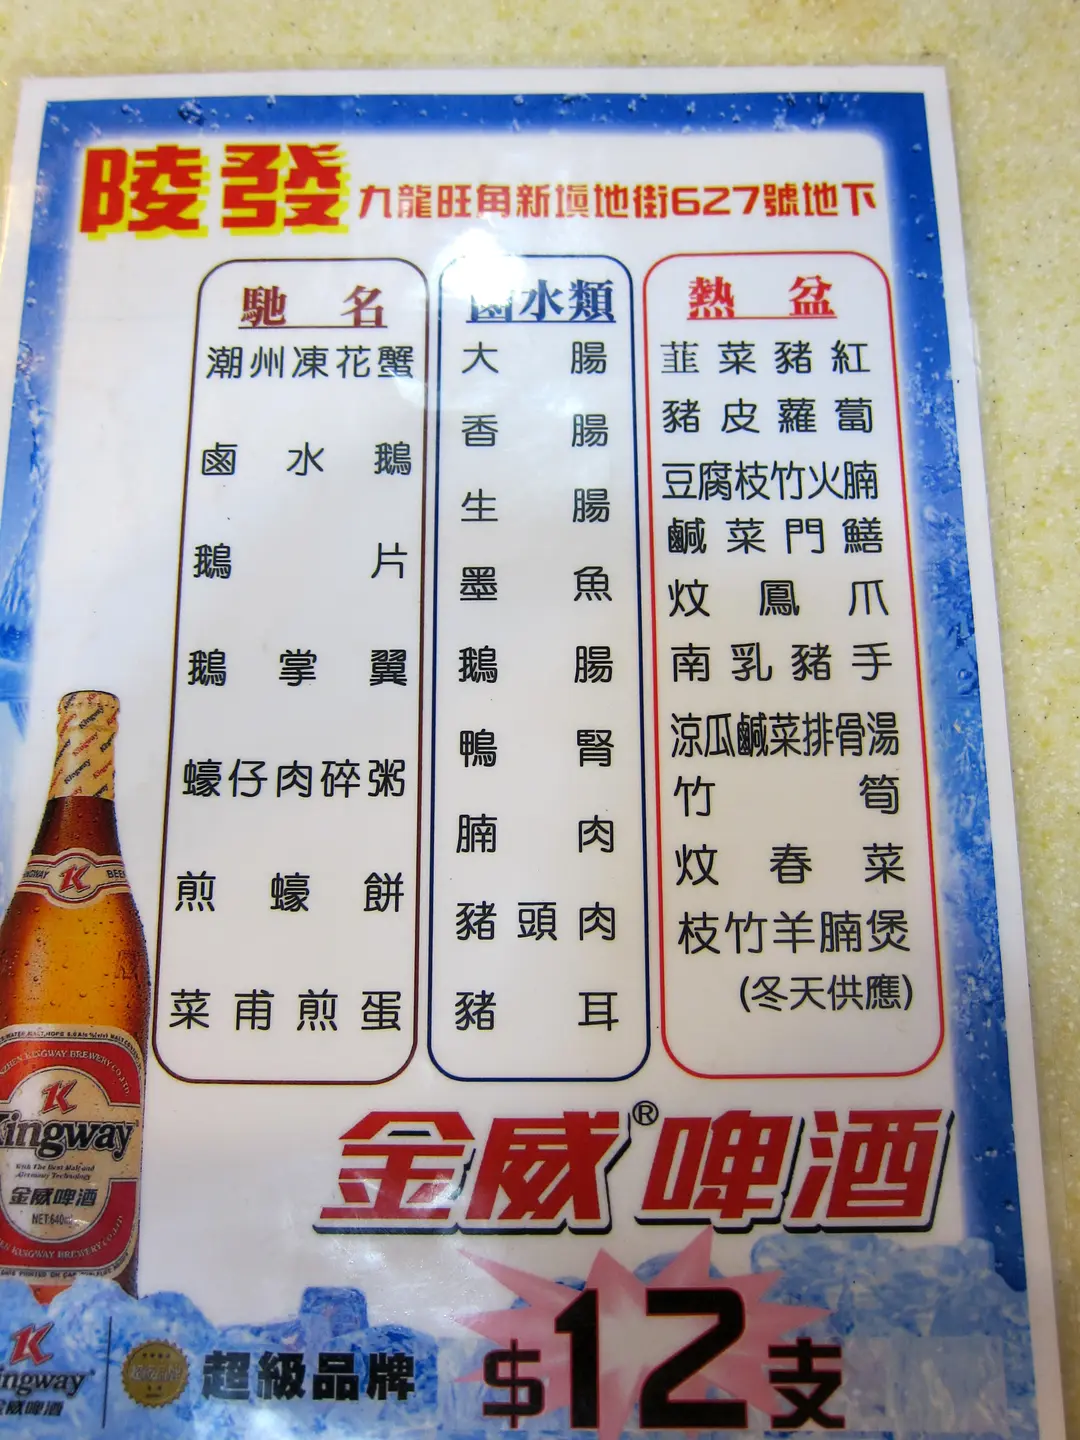 陵發 九龍旺角新填地街627號地下
馳名
潮州凍花蟹
鹵水鵝
鵝片
鵝掌翼
蠔仔肉碎粥
煎蠔餅
菜甫煎蛋
鹵水類
大腸
香腸
生腸
墨魚
鵝腸
鴨腎
腩肉
豬頭肉
豬耳
熱盆
韮菜豬紅
豬皮蘿蔔
豆腐枝竹火腩
鹹菜門鱔
炆鳳爪
南乳豬手
涼瓜鹹菜排骨湯
竹筍
炆春菜
枝竹羊腩煲
(冬天供應)
KINGWAY BEER
KINGWAY BREWERY CO.,LTD
Kingway
With The Best Malt and
Germany Technology
金威啤酒
NET:640ml
金威®啤酒
$12支
Kingway
金威啤酒
超級品牌